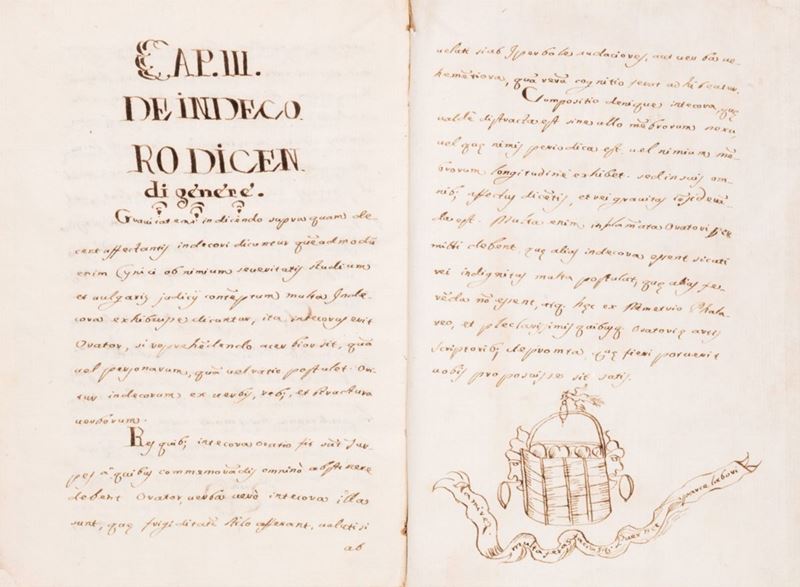 CAP. III.
DE INDECO
RO DICEN
di génere.
Gravitatem in dicendo supra quam de-
cent affectantis indecori dicuntur quẽadmodũ
enim Cynici ob nimium severitatis studium
et vulgaris judicij contẽptum multa Inde-
cora exhibuisse dicuntur, ita indecorus erit
Orator, si reprehẽdendo acerbior sit, quã
vel personarum, quã vel ratio postulet. Ori-
tur indecorum ex verbis, rebus, et structura
verborum.
Res quibus indecora oratio fit sunt Tur-
pes a quibus commemorãdis omnino abstinere
debent Orator, verba vero indecora illa
sunt, quæ frigiditatẽ stilo afferant, veluti si
ab
veluti si ab Hyperbole audaciores, aut verba ve-
hemẽtiora, quã rerũ cognitio ferat adhibeatur.
Compositio denique indecora, quæ
valde distracta est sine ullo mẽbrorum nexu,
vel quæ nimis periodica est vel nimium mẽ-
brorum longitudinẽ exhibet. sed in suis om-
nibus affectus dicẽtis, et rei gravitas
da est. Multa enim inflamata Oratori per
mitti debent quæ alias indecora essent sicuti
rei indignitas multa postulat, quæ alias fe-
rẽda nõ essent, atque hæc ex Demetrio Phala-
reo, et præclarissimis quibusque Oratoriæ artis
scriptoribus depromta, quæ fieri potuerit
vobis proposuisse sit satis.
multa
parce labori